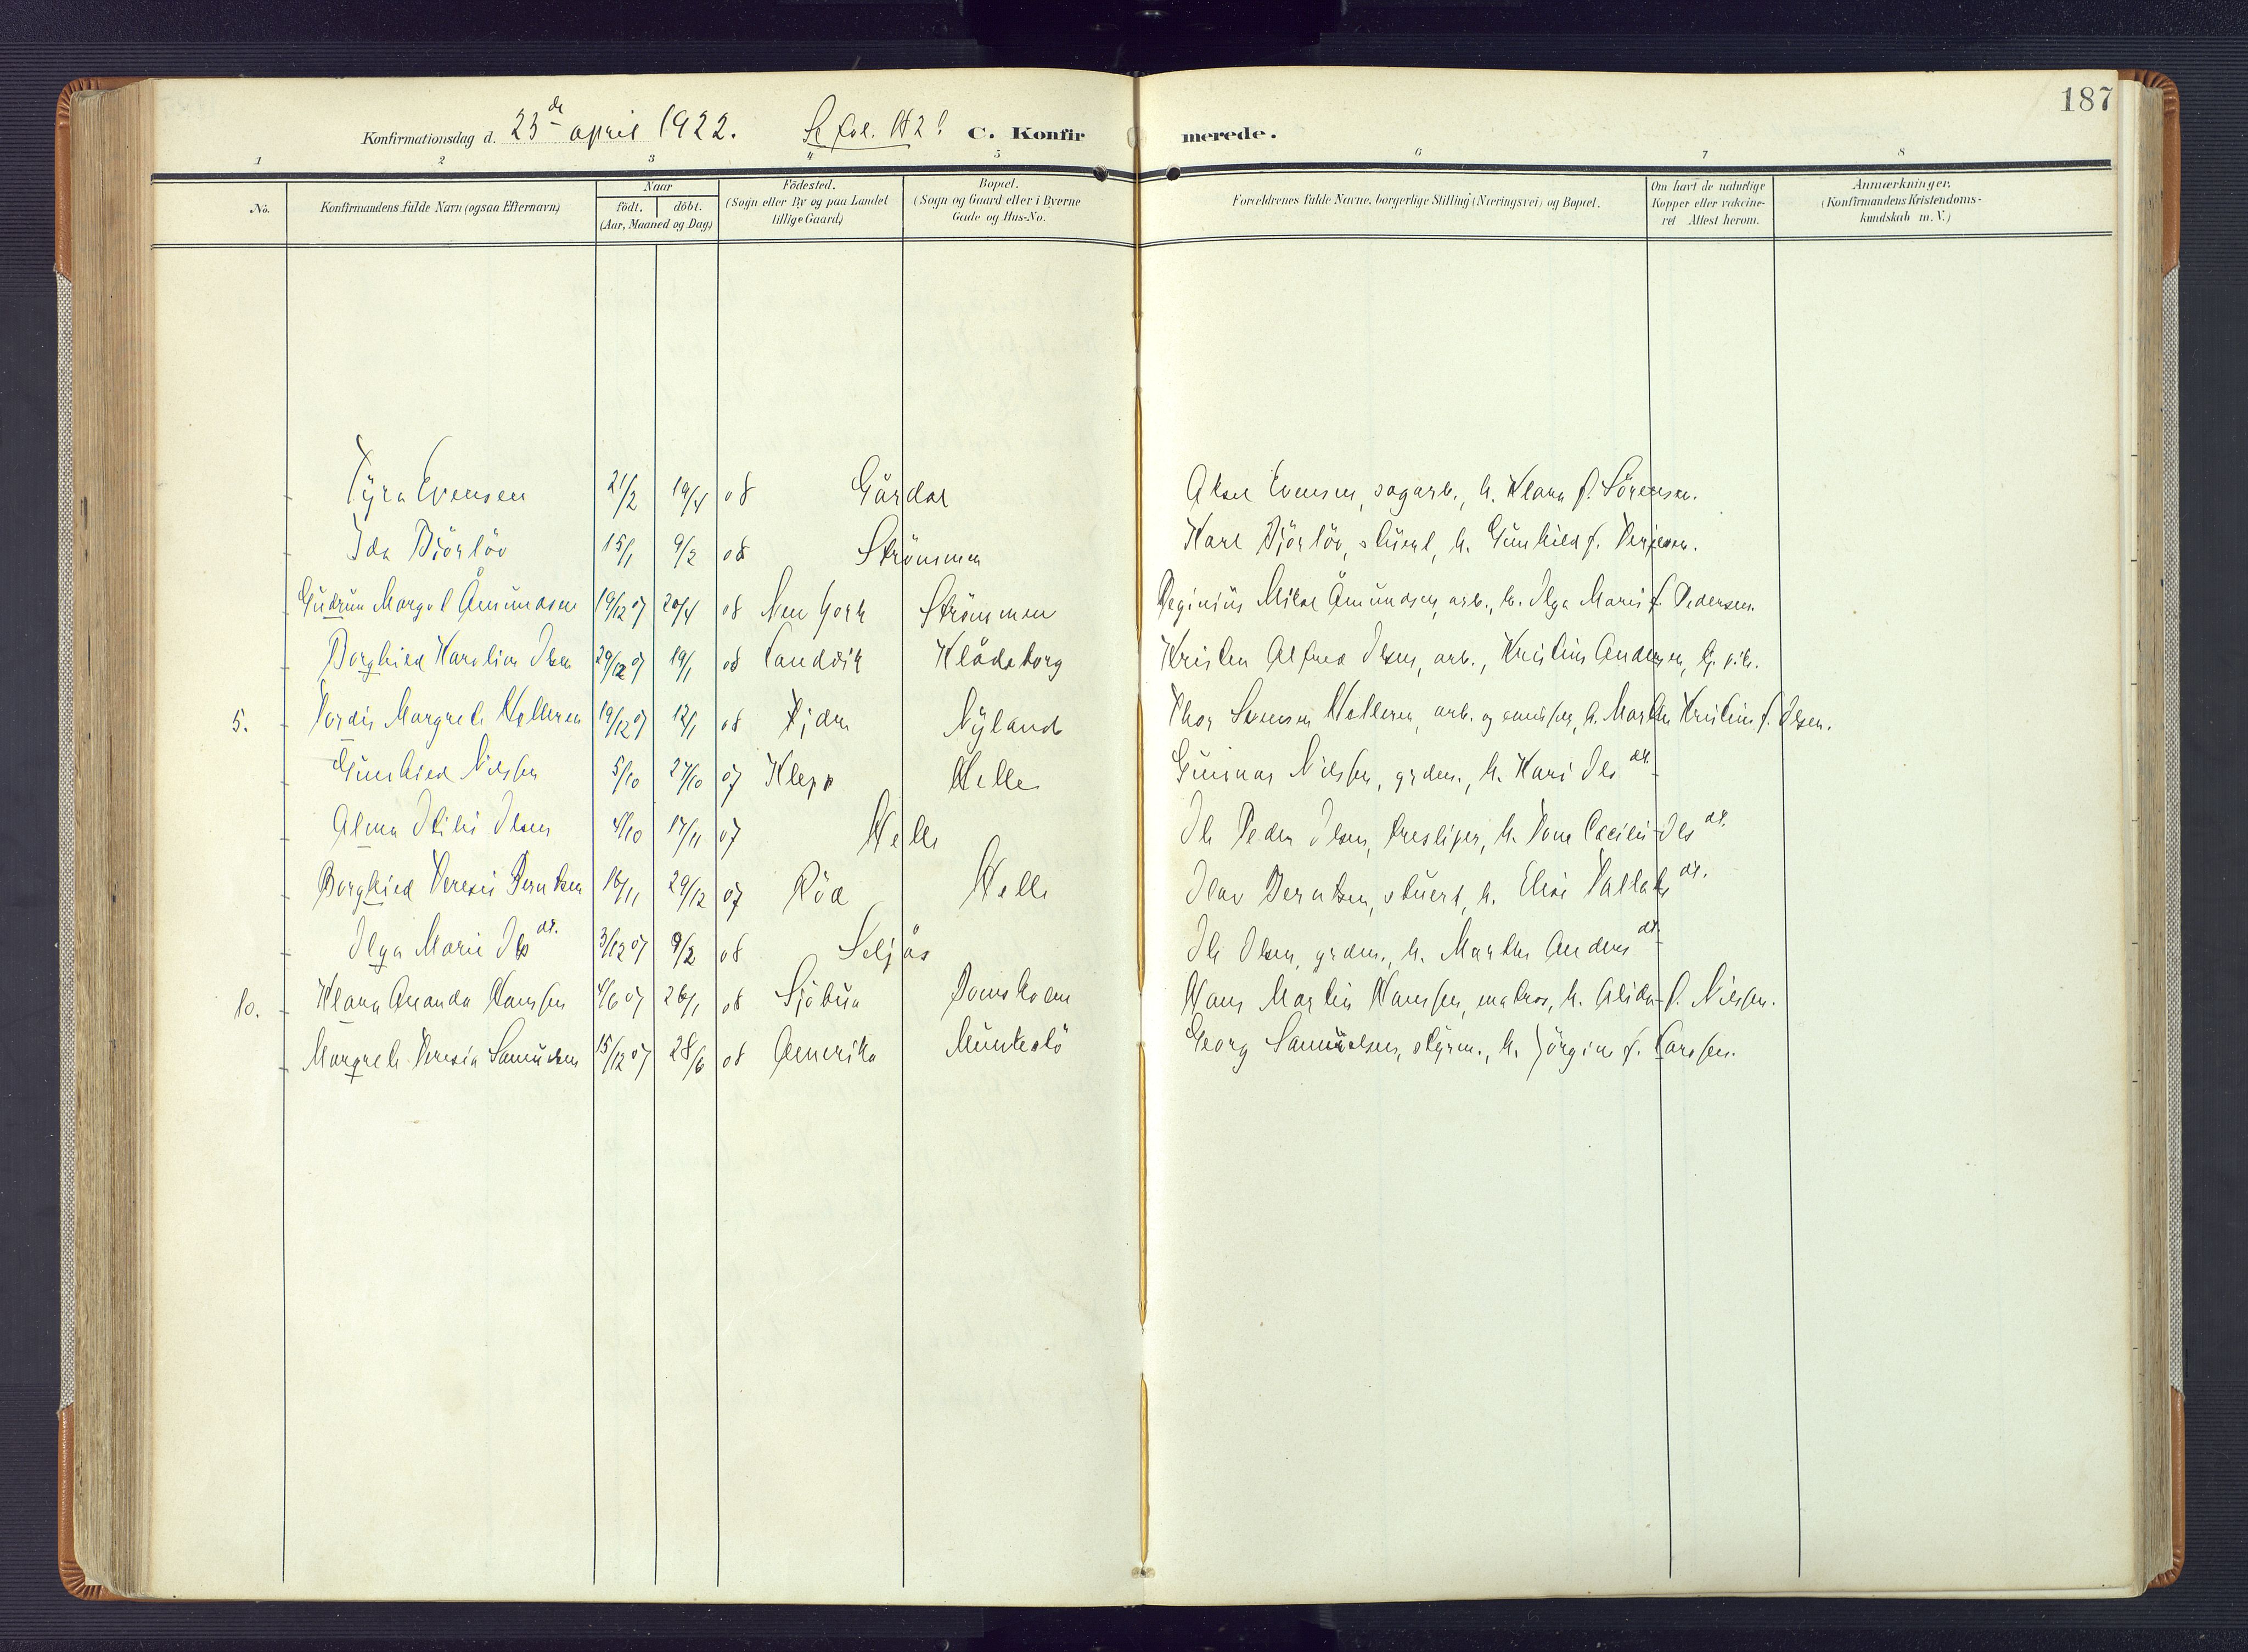 187
Konfirmationsdag d. 23de april 1922. Se fol. 182! C. Konfirmerede.
1 2 3 4 5 6 7 8
No. Konfirmandens fulde Navn (ogsaa Efternavn) Naar født. døbt. (Aar, Maaned og Dag) Födested. (Sogn eller By og paa Landet tillige Gaard) Bopæl. (Sogn og Gaard eller i Byerne Gade og Hus-No. Forældrenes fulde Navne, borgerlige Stilling (Næringsvei) og Bopæl. Om havt de naturlige Kopper eller vaccineret Attest herom. Anmærkninger. (Konfirmandens Kristendomskundskab m. V.)
Tyra Evensen 21/2 19/4 08 Gårdal Aksel Evensen, sagarb., h. Klara f. Sörensen.
Ida Björlöv 15/1 9/2 08 Strömmen Karl Björlöv, stuert, h. Gunhild f. Terjesen.
Gudrun Margot Åmundsen 19/12 07 20/4 08 New York Strömmen Reginius Mikal Åmundsen, arb., h. Olga Marie f. Pedersen.
Borghild Karoline Olsen 29/12 07 19/1 08 Landvik Klödeborg Kristen Alfred Olsen, arb., Kristine Andersen, g. pik.
5. Tordis Margrete Helleren 19/12 07 12/1 08 Nyland Thor Svensen Helleren, arb. og h. Marthe Kristine f. Olsen.
Gunhild Nilsen 5/10 27/10 07 Klepp Helle Gunnar Nilsen, grdm., h. Kari Olsdt.
Alma Otilie Olsen 4/10 17/11 07 Helle Ole Peder Olsen, h. Tone Cecilie Olsdt.
Borghild Teresie Berntsen 16/11 29/12 07 Röd Helle Olav Berntsen, stuert, h. Elise Tallaksdt.
Olga Marie Olsdt. 3/12 07 9/2 08 Seljås Ole Olsen, grdm., h. Marthe Andersdt.
10. Klara Amanda Hansen 4/6 07 26/1 08 Sjöbua Domsholm Hans Martin Hansen, matros, h. Alida f. Nilsen.
Margrete Teresia Samuelsen 15/12 07 28/6 08 Amerika Munkeslö Georg Samuelsen, styrm., h. Jörgine f. Larsen.